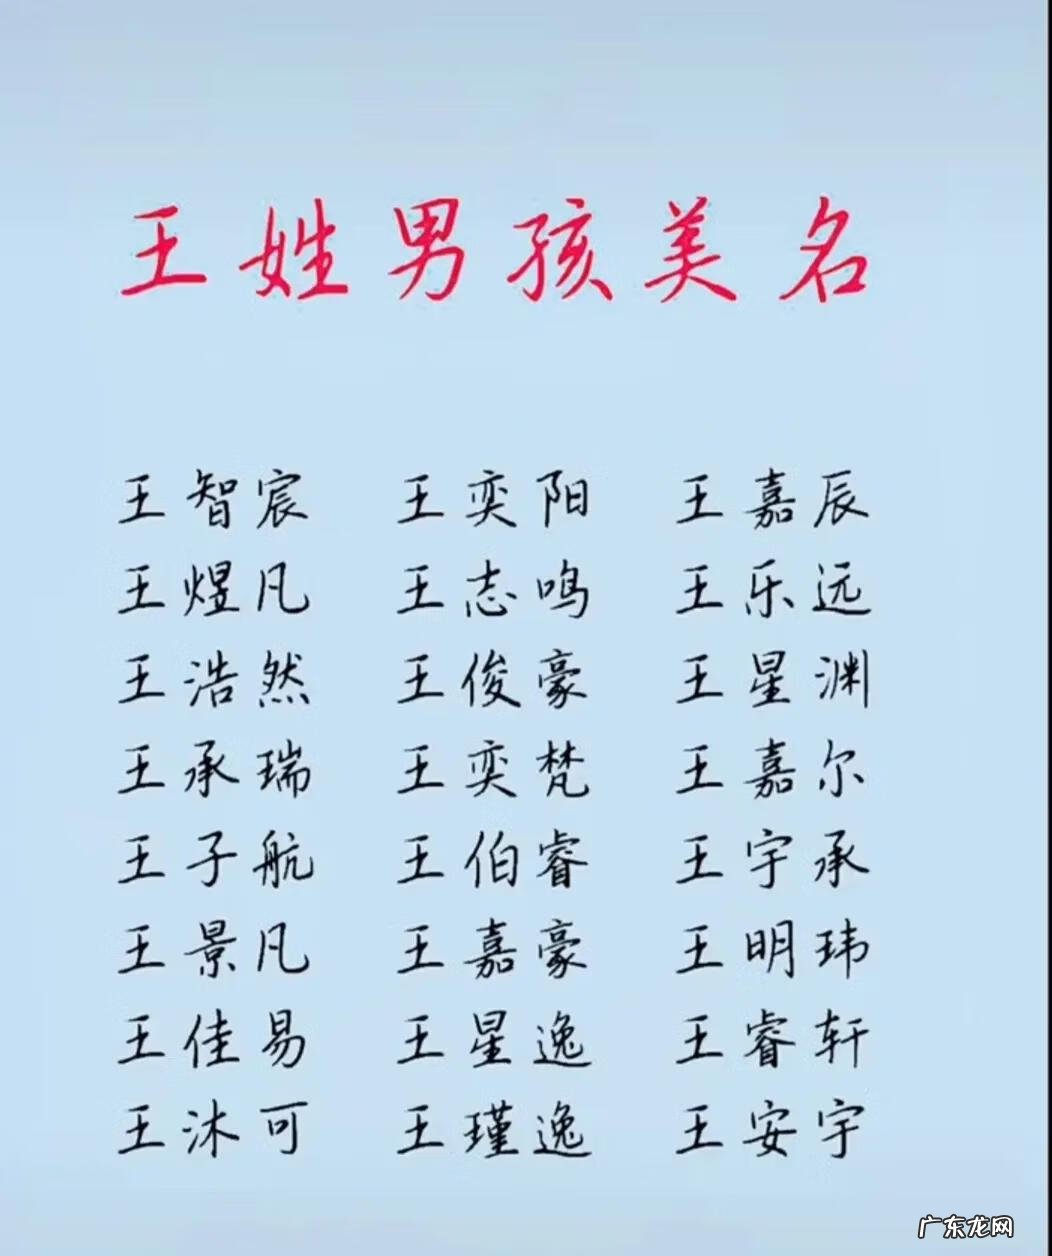 王姓男孩美名
王智宸 王奕阳 王嘉辰
王煜凡 王志鸣 王乐远
王浩然 王俊豪 王星渊
王承瑞 王奕梵 王嘉尔
王子航 王伯睿 王宇承
王景凡 王嘉豪 王明玮
王佳易 王星逸 王睿轩
王沐可 王瑾逸 王安宇
广东龙网